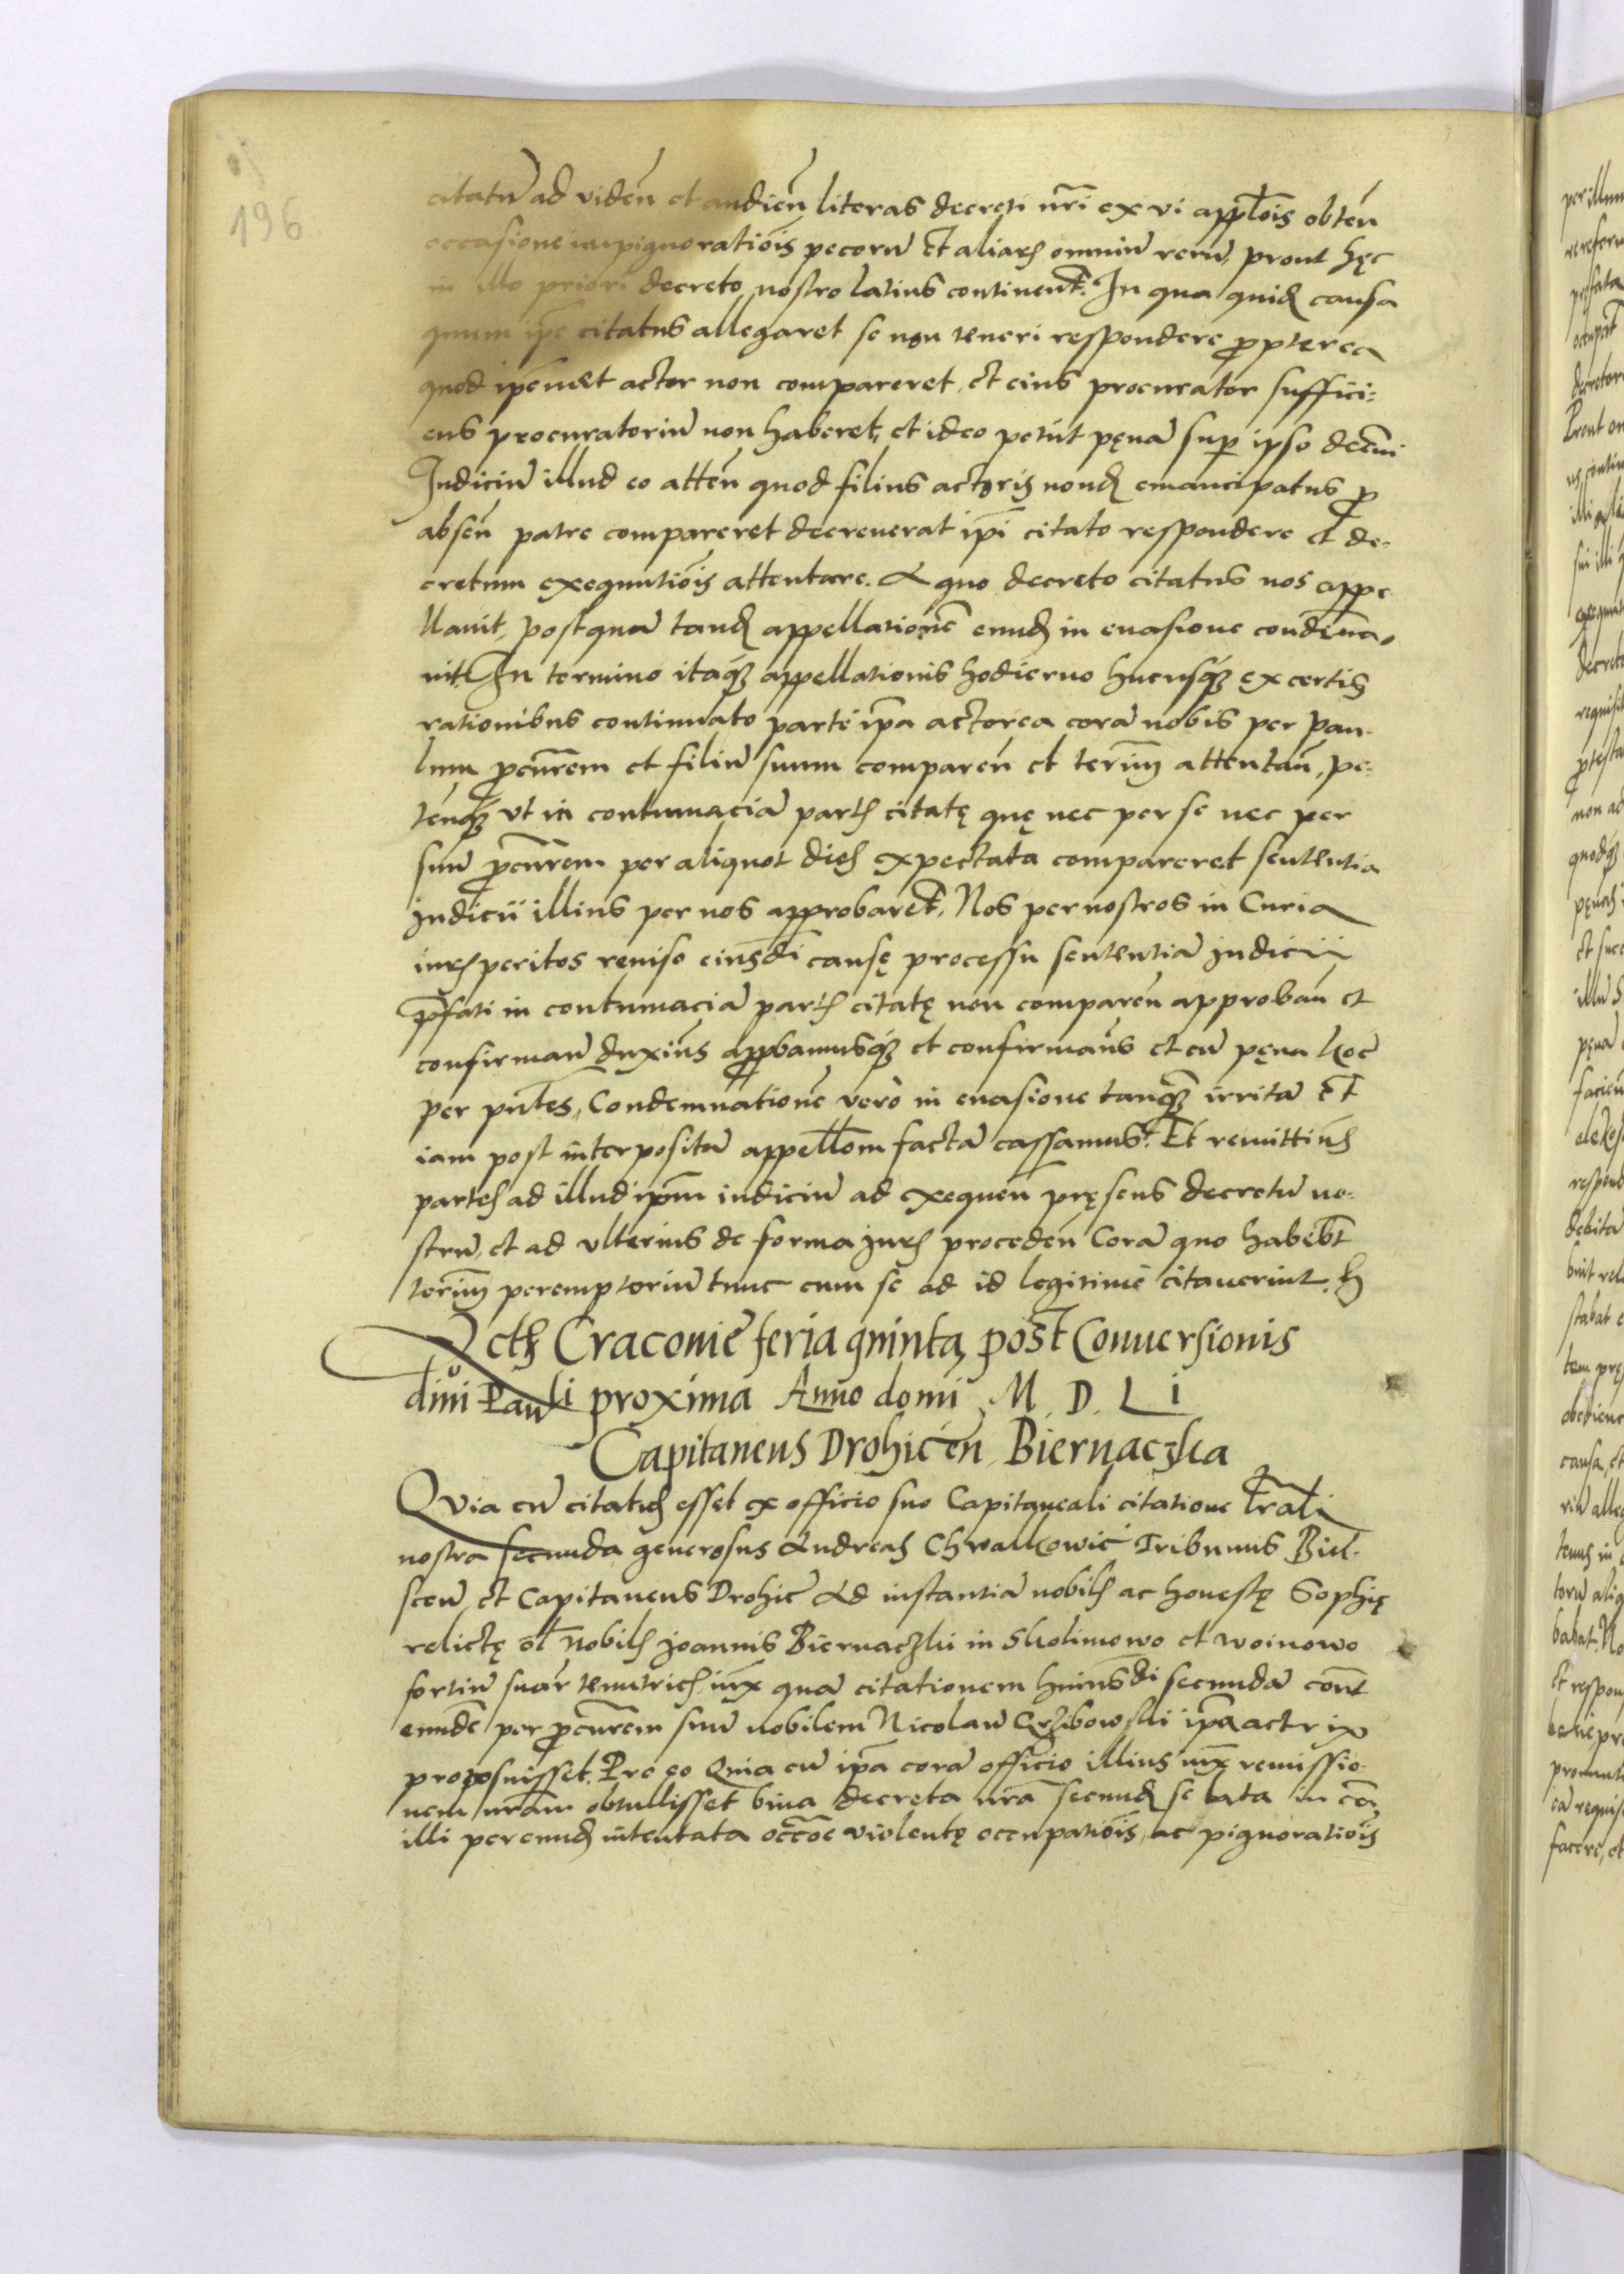 196
citatū ad videñ et audieñ literas decreti nr̃i ex vi appl̃ois obteñ
occasione impignoratiõis pecorū et aliaꝝ omniū rerū, prout hęc
in illo priori decreto nostro latius continentr̃. In qua quidꝫ causa
quum ip̃e citatus allegaret se non teneri respondere ꝓpterea
quod ip̃emet actor non compareret, et eius procurator suffici:
ens procuratoriū non haberet, et ideo petijt pęnā suꝑ ipso decẽni
Iudiciū illud eo atteñ quod filius actoris nondꝫ emancipatus ꝓ
abseñ patre compareret decreuerat ip̃i citato respondere et de:
cretum exequutiõis attentare. A quo decreto citatus nos appe
llauit, postquā tandꝫ appellationẽ eundꝫ in euasione condẽna:
uit. In termino itaqꝫ appellationis hodierno hucusqꝫ ex certis
rationibus continuato parte ip̃a actorea corā nobis per Pau.
lum ꝓcur̃em et filiū suum compareñ et term̃ attentañ, pe:
tenqꝫ vt in contumaciā partis citatę quę nec per se nec per
suū ꝓcur̃em per aliquot dies expectata compareret sententia
Iudicii illius per nos approbaretr̃. Nos per nostros in Curia
iuris peritos reuiso eiusdi causę processu sententiā Iudicii
p̃fati in contumaciā partis citatę non compareñ approbañ et
confirmañ duxim̃s apꝓbamusqꝫ et confirmam̃s et cū pęna hoc
per pñtes, Condemnationẽ verò in euasione tanqꝫ irritā et
iam post interpositā appell̃om factā cassamus. Et remittim̃s
partes ad illud ip̃m iudiciū ad exequeñ pręsens decretū no:
strū, et ad vlterius de forma iuris procedeñ Corā quo habebt̃
term̃ peremptoriū tunc cum se ad id legitimè citauerint.
Acts Cracouiẽ feria quinta, post Conuersionis
diui Pauli proxima Anno domi M. D. L i
Capitaneus Drohiceñ Biernaczka
Quia cū citatus esset ex officio suo Capitaneali citatione lr̃ali
nostra secunda generosus Andreas Chwalkowic Tribunus Biel.
sceñ et Capitaneus Drohic̃ Ad instantiā nobilis ac honestę Sophię
relictę ol̃ Nobilis Joannis Biernaczki in Skolimowo et Woinowo
sortiū suar̃ tenutricis, iux̃ quā citationem huiusdi secundā cont̃
eundẽ per ꝓcur̃em suū nobilem Nicolaū Grzibowski ip̃a actrix
proposuisset, Pro eo Quia cū ip̃a corā officio illius iux̃ remissio:
nem nr̃am obtullisset bina decreta nr̃a secundꝫ se lata in cã
illi per eundꝫ intentata occ̃õe violentę occupatiõis, ac pignoratiõis